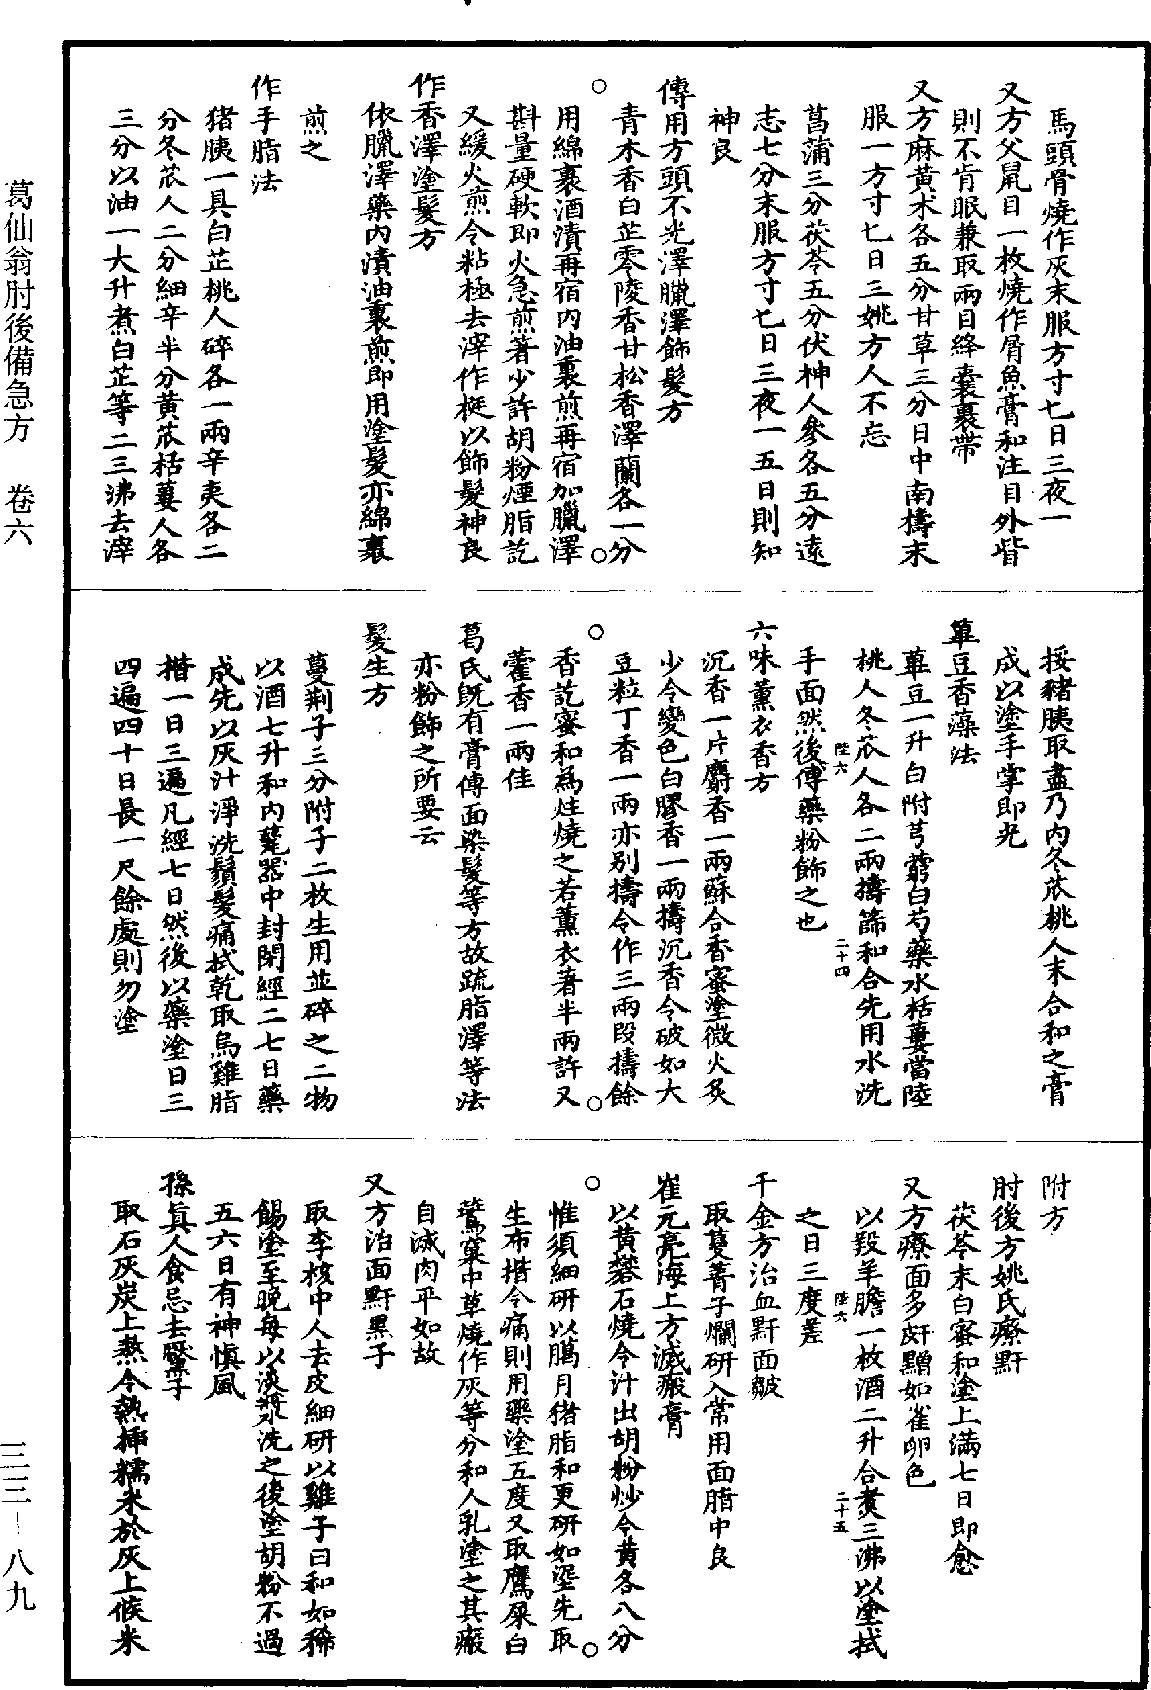 馬頭骨燒作灰末服方寸匕日三夜一
又方父鼠目一枚燒作屑魚膏和注目外眥
則不肯眠兼取兩目絳囊裹帶
又方麻黃术各五分甘草三分日中南擣末
服一方寸匕日三姚方人不忘
菖蒲三分茯苓五分伏神人參各五分遠
志七分末服方寸匕日三夜一五日則知
神良
傳用方頭不光澤臘澤飾髮方
青木香白芷零陵香甘松香澤蘭各一分
用綿裹酒漬再宿內油裏煎再宿加臘澤
斟量硬軟即火急煎著少許胡粉煙脂訖
又緩火煎令粘極去滓作梃以飾髮神良
作香澤塗髮方
依臘澤藥內漬油裏煎即用塗髮亦綿裹
煎之
作手脂法
猪胰一具白芷桃人碎各一兩辛夷各二
分冬苽人二分細辛半分黃苽栝蔞人各
三分以油一大升煮白芷等二三沸去滓
挼豬胰取盡乃內冬苽桃人末合和之膏
成以塗手掌即光
蓽豆香藻法
蓽豆一升白附芎藭白芍藥水栝蔞當陸
桃人冬苽人各二兩擣篩和合先用水洗
手面然後傅藥粉飾之也
陸六
二十四
六味薰衣香方
沉香一片麝香一兩蘇合香蜜塗微火炙
少令變色白膠香一兩擣沉香令破如大
豆粒丁香一兩亦別擣令作三兩段擣餘
香訖蜜和為炷燒之若薰衣著半兩許又
藿香一兩佳
葛氏既有膏傅面染髮等方故疏脂澤等法
亦粉飾之所要云
髮生方
蔓荆子三分附子二枚生用並碎之二物
以酒七升和內甆器中封閉經二七日藥
成先以灰汁淨洗鬚髮痛拭乾取烏雞脂
揩一日三遍凡經七日然後以藥塗日三
四遍四十日長一尺餘處則勿塗
附方
肘後方姚氏療䵟
茯苓末白蜜和塗上滿七日即愈
又方療面多䵟䵴如雀卵色
以羖羊膽一枚酒二升合煮三沸以塗拭
之日三度差
陸六
二十五
千金方治血䵟面皺
取蔓菁子爛研入常用面脂中良
崔元亮海上方滅瘢膏
以黄礬石燒令汁出胡粉炒令黄各八分
惟須細研以臈月猪脂和更研如埿先取
生布揩令痛則用藥塗五度又取鷹屎白
鷰窠中草燒作灰等分和人乳塗之其瘢
自滅肉平如故
又方治面䵟黑子
取李核中人去皮細研以雞子白和如稀
餳塗至晚每以淡漿洗之後塗胡粉不過
五六日有神慎風
孫真人食忌去黶子
取石灰炭上熬令熱插糯米於灰上候米
葛仙翁肘後備急方　卷六
三三—八九